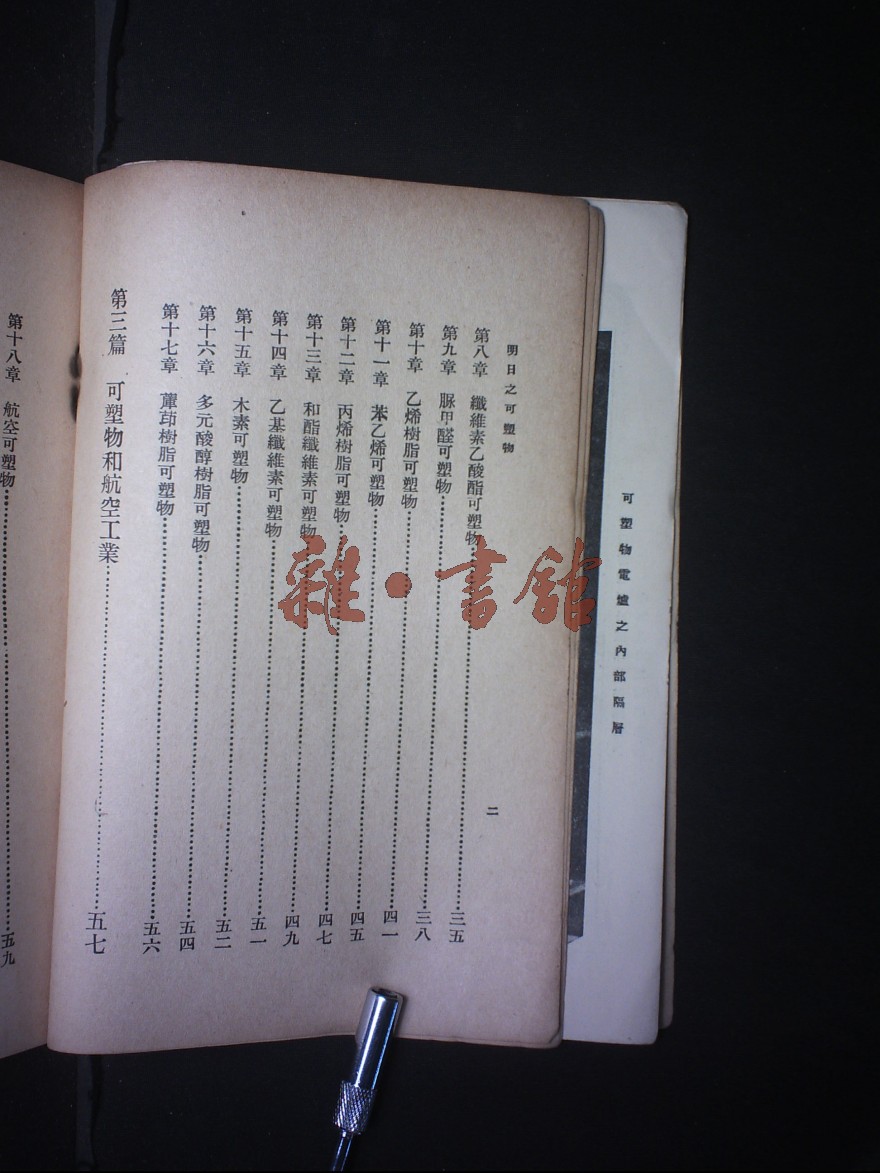 可塑物電爐之內部隔層
明日之可塑物
二
第八章 纖維素乙酸酯可塑物……三五
第九章 脲甲醛可塑物……三八
第十章 乙烯樹脂可塑物……四一
第十一章 苯乙烯可塑物……四五
第十二章 丙烯樹脂可塑物……四七
第十三章 和酯纖維素可塑物……四九
第十四章 乙基纖維素可塑物……五一
第十五章 木素可塑物……五二
第十六章 多元酸醇樹脂可塑物……五四
第十七章 樹脂可塑物……五六
第三篇 可塑物和航空工業……五七
第十八章 航空可塑物……五九
雜·書館